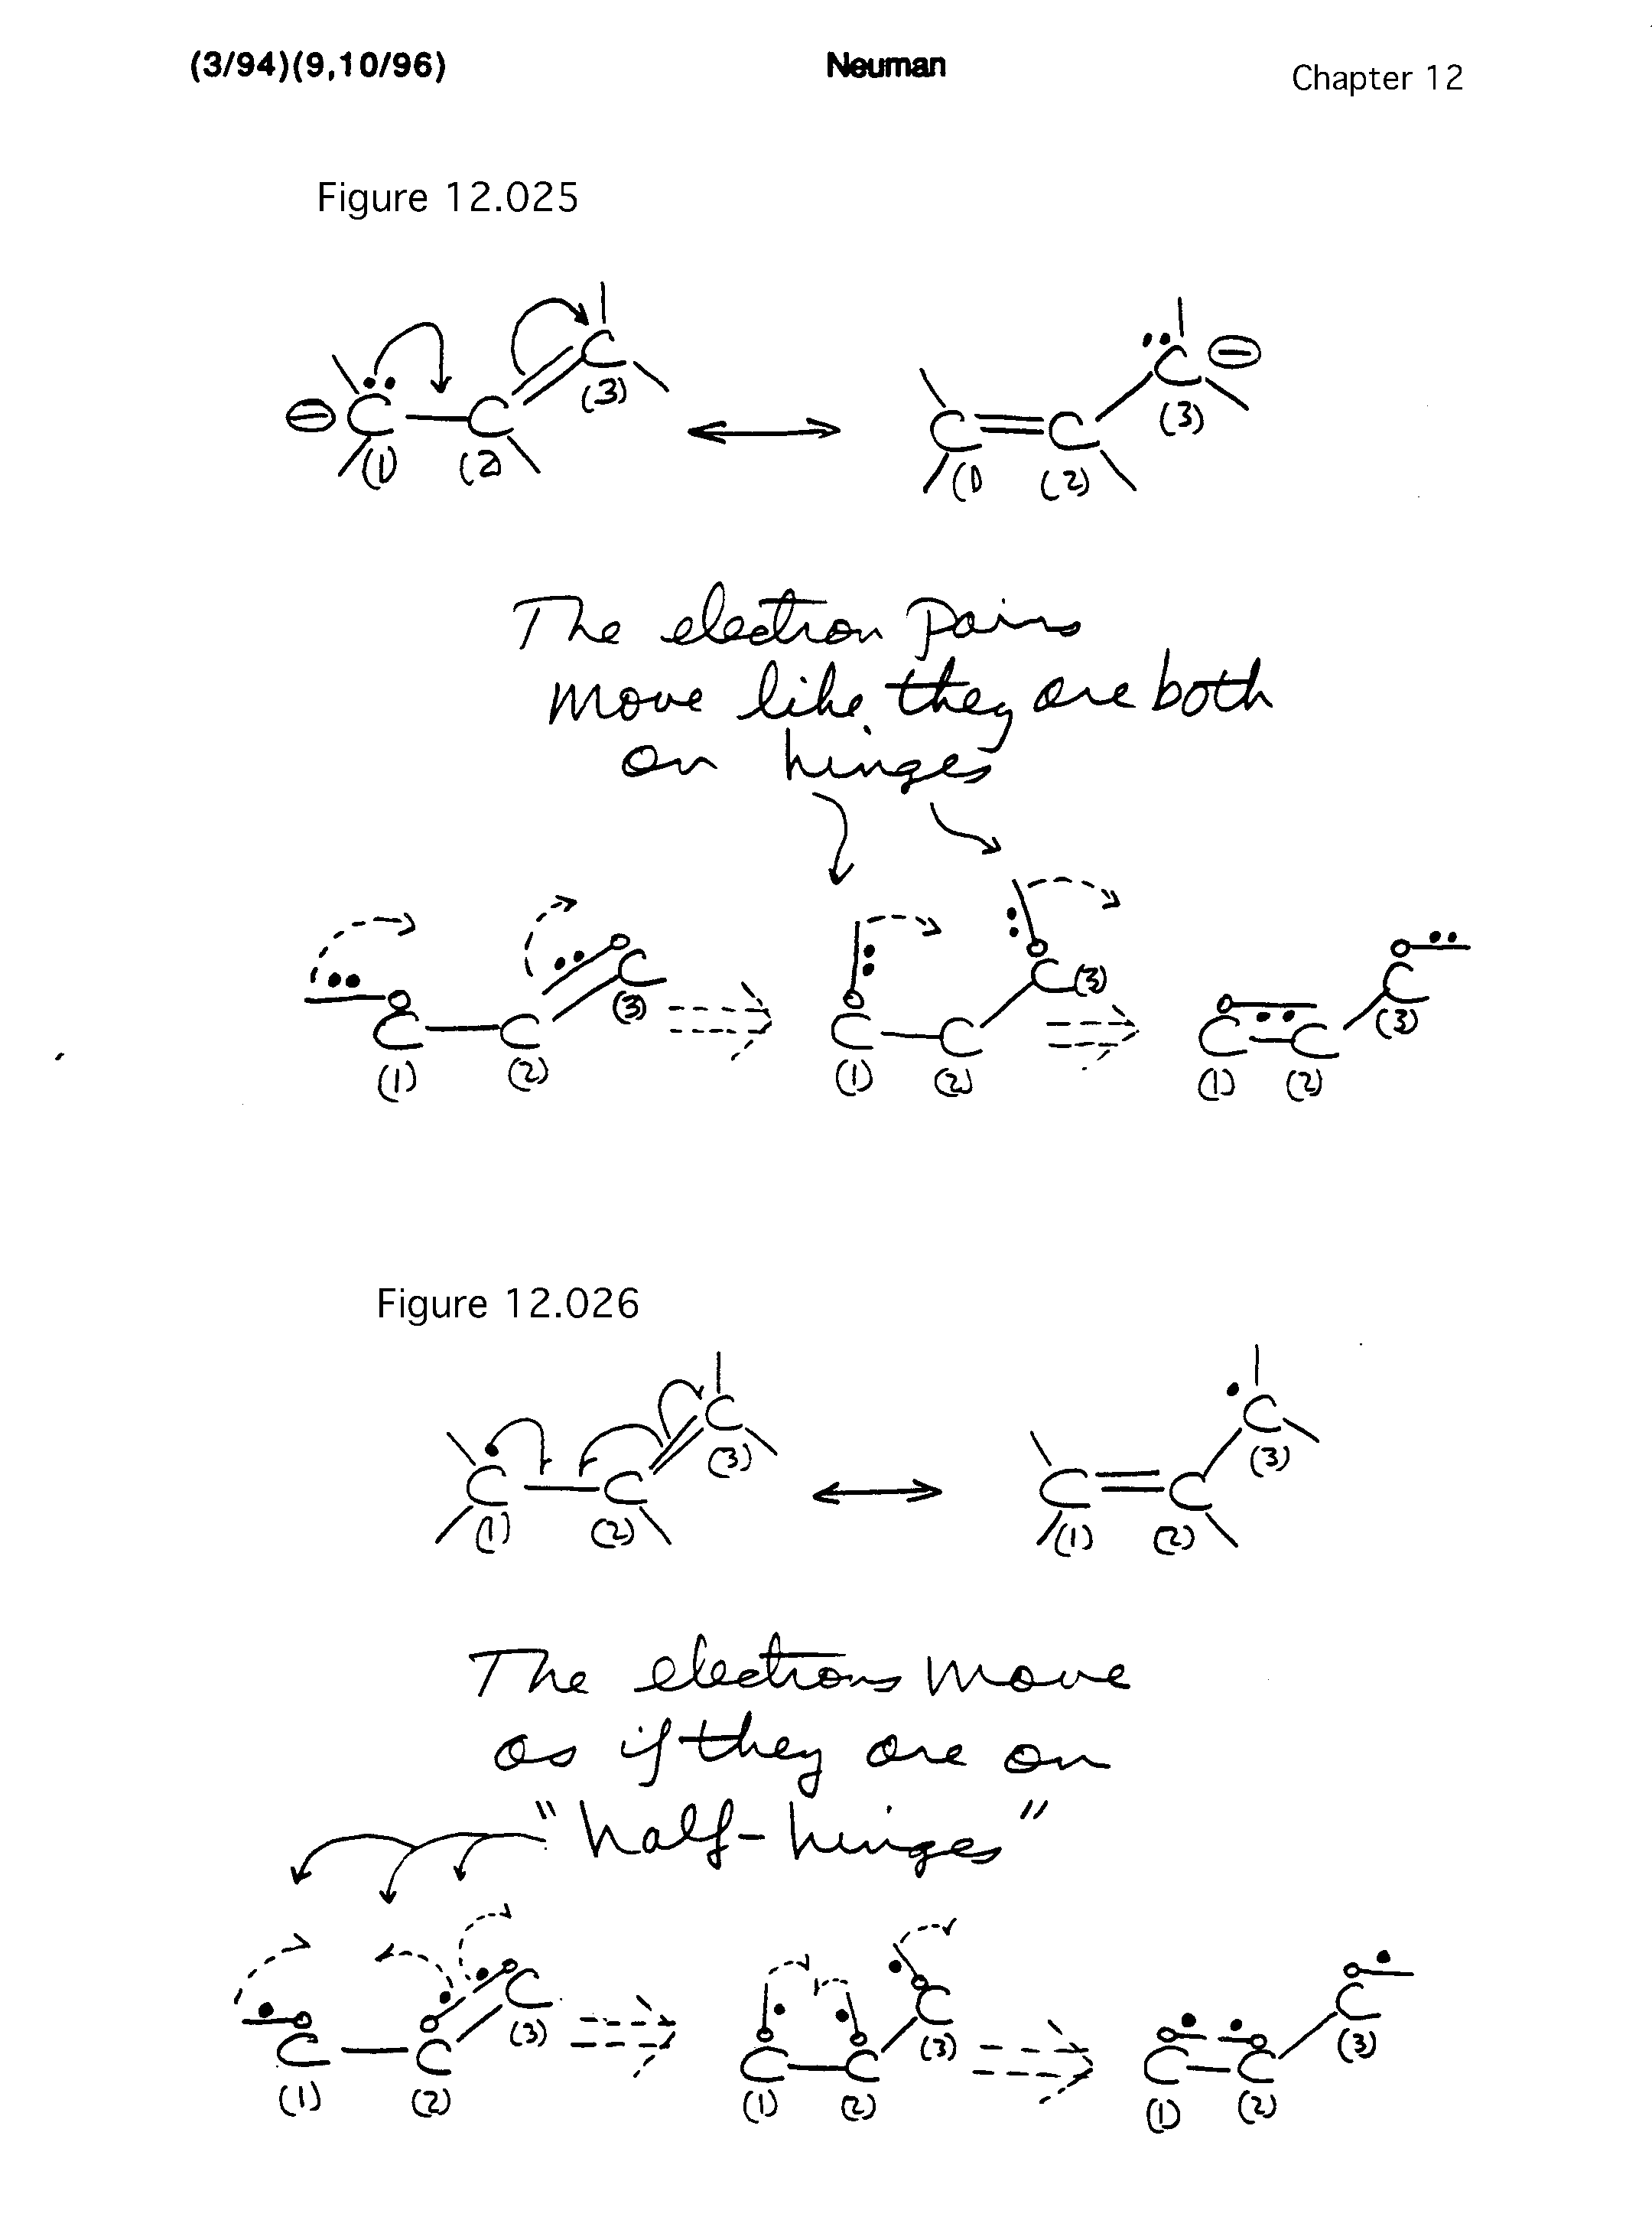 (3/94)(9,10/96) Neuman Chapter 12
Figure 12.025
C C C C C C
(1) (2) (3) (1) (2) (3)
The electron pairs
move like they are both
on hinges
C C C C C C C C C
(1) (2) (3) (1) (2) (3) (1) (2) (3)
Figure 12.026
C C C C C C
(1) (2) (3) (1) (2) (3)
The electrons move
as if they are on
"half-hinges"
C C C C C C C C C
(1) (2) (3) (1) (2) (3) (1) (2) (3)